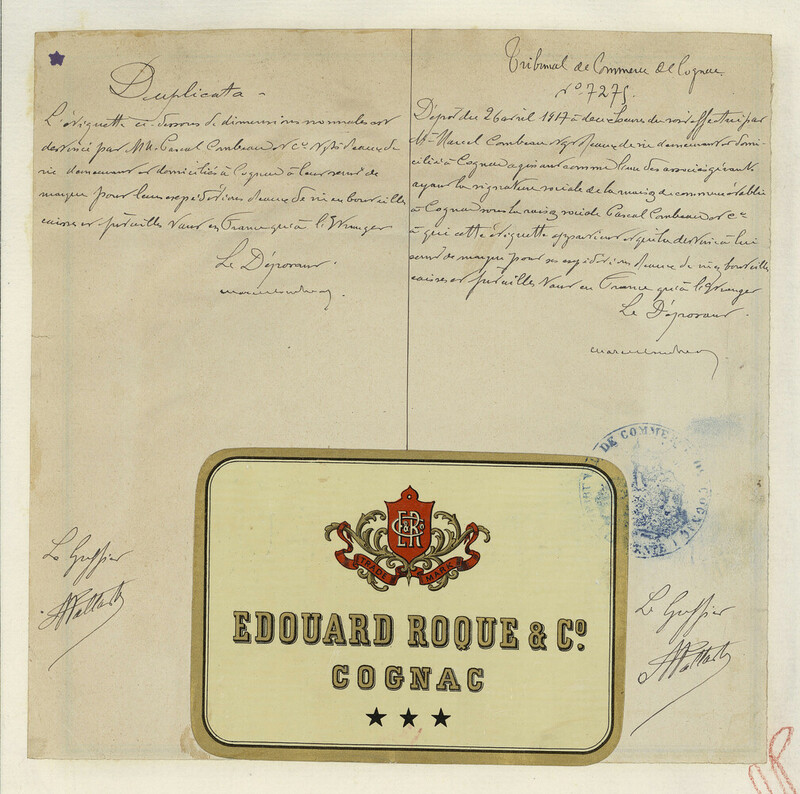 Duplicata
L'étiquette ci-dessous de dimensions normales est
destinée par MM. Pascal Combeau et Cie Ngts d'eaux de
vie demeurant et domiciliés à Cognac à leur servir de
marque pour leurs expéditions d'eaux de vie en bouteilles
caisses et futailles tant en France qu'à l'Etranger
Le Déposant
Le Greffier
Tribunal de Commerce de Cognac
No. 7275
Dépôt du 26 avril 1917 à deux heures du soir effectué par
Mr Marcel Combeau Ngt d'eaux de vie demeurant et domi-
cilié à Cognac agissant comme l'un des associés gérants
ayant la signature sociale de la maison de commerce établie
à Cognac sous la raison sociale Pascal Combeau et Cie
à qui cette étiquette appartient et qui la destine à lui
servir de marque pour ses expéditions d'eaux de vie en bouteilles
caisses et futailles tant en France qu'à l'Etranger
Le Déposant
DE COMMERCE DE COGNAC
Le Greffier
E R & Co
TRADE MARK
EDOUARD ROQUE & Co.
COGNAC